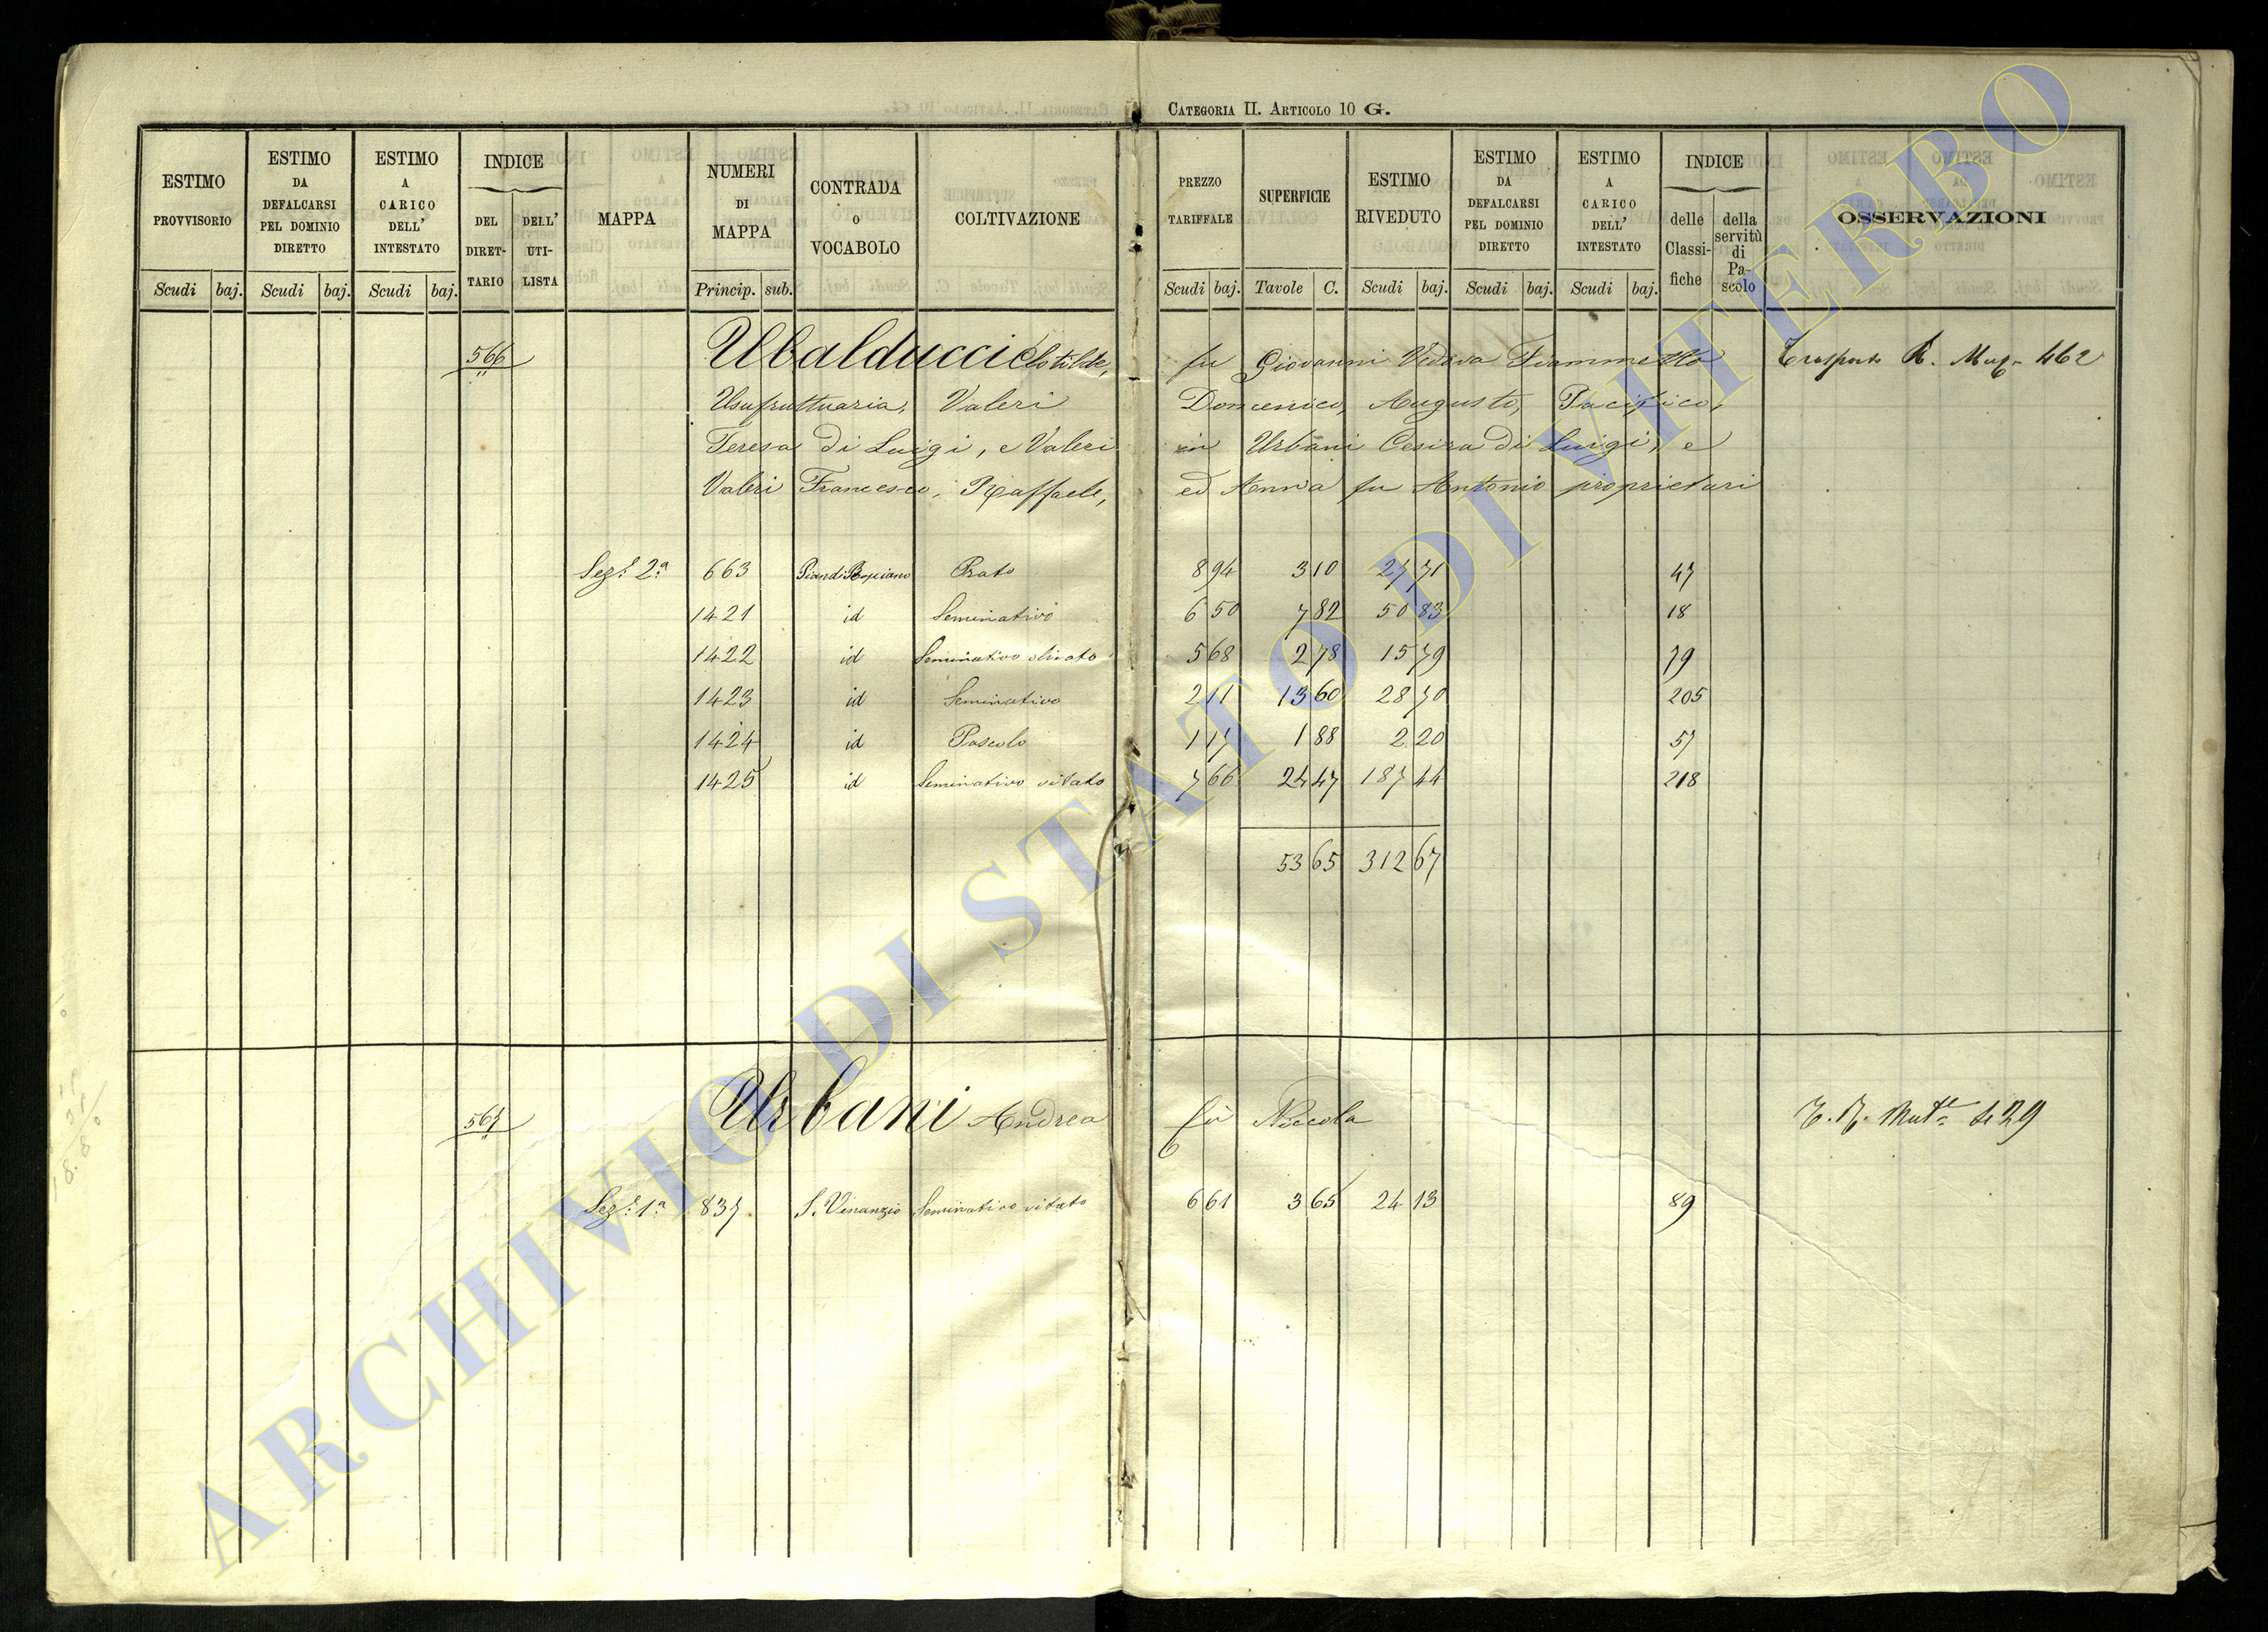 CATEGORIA II. ARTICOLO 10 G.
ESTIMO PROVVISORIO
ESTIMO DA DEFALCARSI PEL DOMINIO DIRETTO
ESTIMO A CARICO DELL' INTESTATO
INDICE
DEL DIRET-TARIO
DELL' UTI-LISTA
MAPPA
NUMERI DI MAPPA
CONTRADA O VOCABOLO
COLTIVAZIONE
PREZZO TARIFFALE
SUPERFICIE
ESTIMO RIVEDUTO
ESTIMO DA DEFALCARSI PEL DOMINIO DIRETTO
ESTIMO A CARICO DELL' INTESTATO
INDICE
delle Classi-fiche
della servitù di Pa-scolo
OSSERVAZIONI
Scudi baj. Scudi baj. Scudi baj. Princip. sub. Scudi baj. Tavole C. Scudi baj. Scudi baj. Scudi baj.
566 Ubalducci Clotilde, fu Giovanni Vedova Trasporto R. 462
Usufruttuaria, Valeri Domenico, Augusto, Pacifico,
Teresa di Luigi, e Valeri in Urbani Cesira di Luigi, e
Valeri Francesco, Raffaele, ed Anna fu Antonio proprietari
Sez.e 2.a 663 Prato 8 94 3 10 27 71 47
1421 id Seminativo 6 50 7 82 50 83 18
1422 id Seminativo olivato 5 68 2 78 15 79 79
1423 id Seminativo 2 11 13 60 28 70 205
1424 id Pascolo 1 17 1 88 2 20 57
1425 id Seminativo vitato 7 66 24 47 187 44 218
53 65 312 67
567 Urbani Andrea fu Niccola
Sez.e 1.a 837 S. Venanzio Seminativo vitato 6 61 3 65 24 13 89
ARCHIVIO DI STATO DI VITERBO